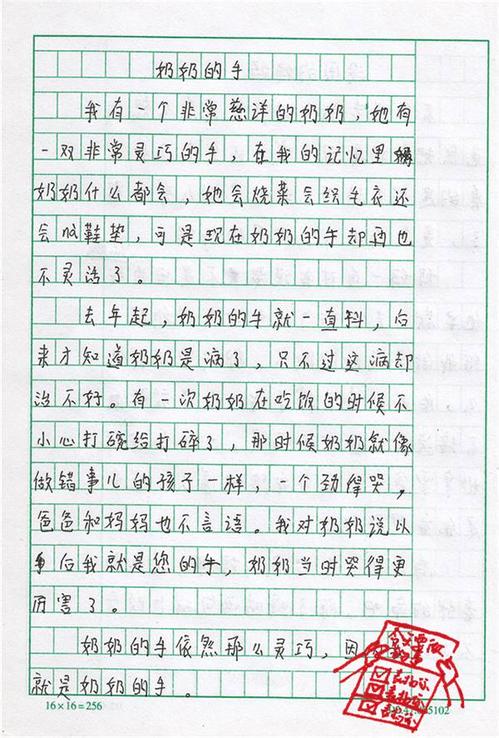 奶奶的手
我有一个非常慈详的奶奶,她有
一双非常灵巧的手,在我的记忆里
奶奶什么都会,她会烧菜会织毛衣还
会做鞋垫,可是现在奶奶的手却再也
不灵活了。
去年起,奶奶的手就一直抖,后
来才知道奶奶是病了,只不过这病却
治不好。有一次奶奶在吃饭的时候不
小心打碗给打碎了,那时候奶奶就像
做错事儿的孩子一样,一个劲得哭,
爸爸和妈妈也不言语。我对奶奶说以
后我就是您的手,奶奶当时哭得更
厉害了。
奶奶的手依然那么灵巧,因
就是奶奶的手。
16×16=256
5102